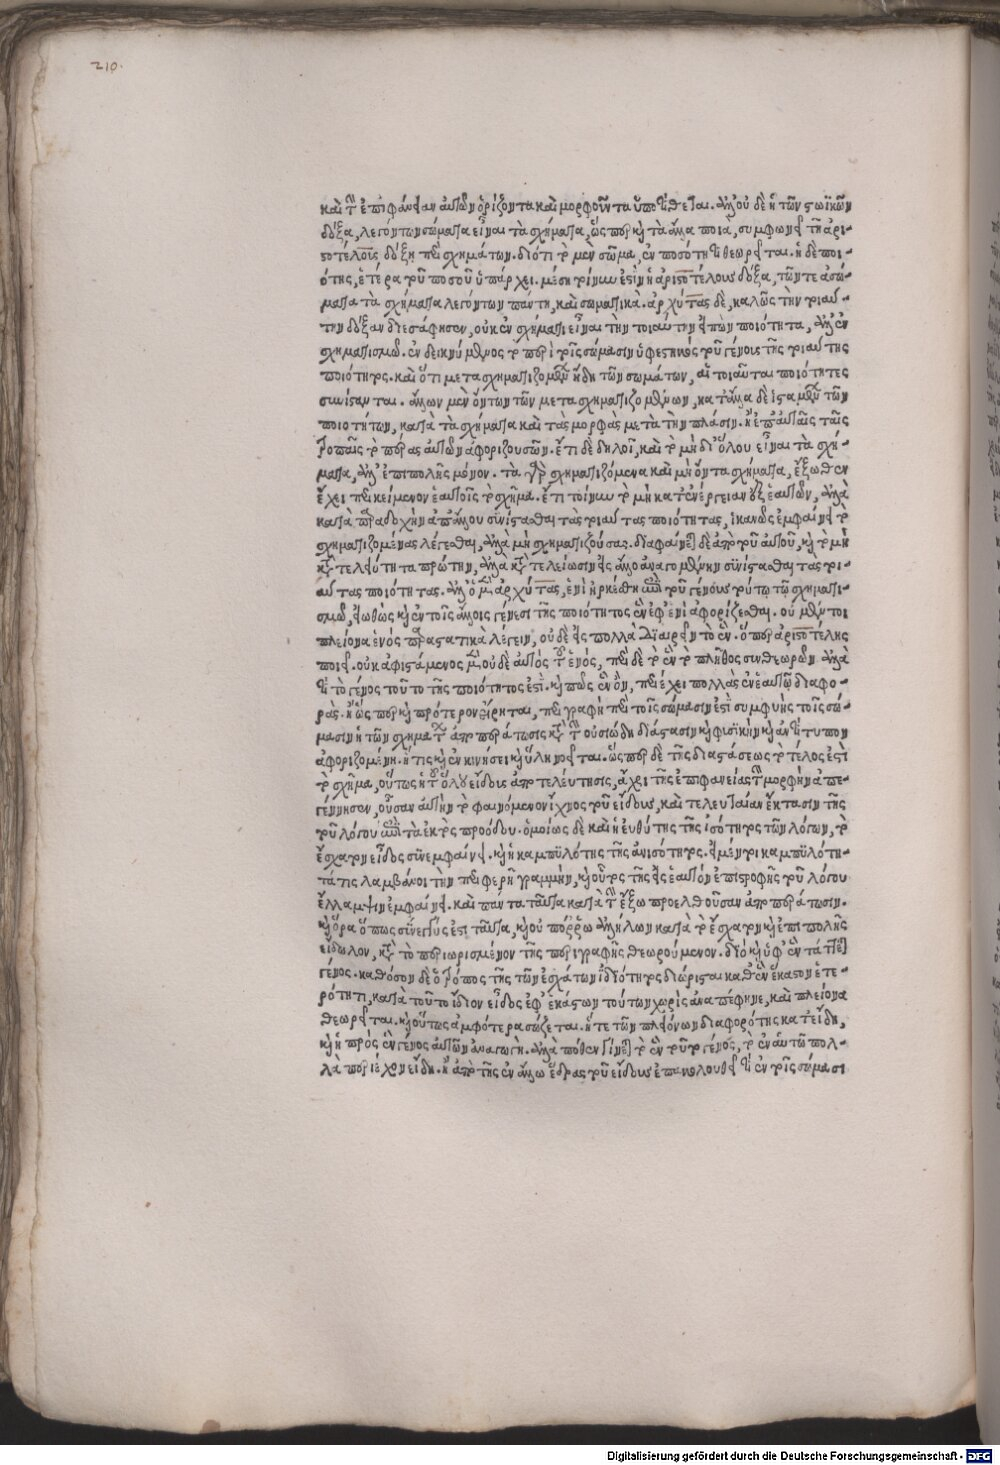 210.
καὶ τὴν ἐπιφάνειαν αὐτῶν ὁρίζοντα καὶ μορφοῦντα ὑποτίθεται. ἀλλ' οὐδὲ ἡ τῶν στωϊκῶν
δόξα, λεγόντων σώματα εἶναι τὰ σχήματα, ὥσπερ καὶ τὰ ἄλλα ποιὰ, συμφωνεῖ τῇ ἀρι-
στοτέλους δόξῃ περὶ σχημάτων. διότι τὸ μὲν σῶμα, ἐν ποσότητι θεωρεῖται. ἡ δὲ ποι-
ότης, ἑτέρα τοῦ ποσοῦ ὑπάρχει. μέση τοίνυν ἐστὶν ἡ ἀριστοτέλους δόξα, τῶν τε ἀσώ-
ματα τὰ σχήματα λεγόντων πάντη, καὶ σωματικά. ἀρχύτας δὲ, καλῶς τὴν τοιαύ-
την δόξαν διεσάφησεν, οὐκ ἐν σχήματι εἶναι τὴν τοιαύτην εἰπὼν ποιότητα, ἀλλ' ἐν
σχηματισμῷ. ἐνδεικνύμενος τὸ περὶ τοῖς σώμασιν ὑφεστηκὸς τοῦ γένους τῆς τοιαύτης
ποιότητος. καὶ ὅτι μετασχηματιζομένων ἤδη τῶν σωμάτων, αἱ τοιαῦται ποιότητες
συνίστανται. ἄλλων μὲν ὄντων τῶν μετασχηματιζομένων, κατ' ἄλλα δὲ ἱσταμένων τῶν
ποιοτήτων, κατὰ τὰ σχήματα καὶ τὰς μορφὰς μετὰ τὴν πλάσιν. ἢ ἐπ' αὐταῖς ταῖς
τροπαῖς τὸ πέρας αὐτῶν ἀφοριζουσῶν. ἔτι δὲ δηλοῖ, καὶ τὸ μὴ δι' ὅλου εἶναι τὰ σχή-
ματα, ἀλλ' ἐπιπολῆς μόνον. τὰ γὰρ σχηματιζόμενα καὶ μὴ ὄντα σχήματα, ἔξωθεν
ἔχει περικείμενον ἑαυτοῖς τὸ σχῆμα. ἔτι τοίνυν τὸ μὴ κατ' ἐνέργειαν ἐξ ἑαυτῶν, ἀλλὰ
κατὰ παραδοχὴν ἀπ' ἄλλου συνίστασθαι τὰς τοιαύτας ποιότητας, ἱκανῶς ἐμφαίνει τὸ
σχηματιζομένας λέγεσθαι, ἀλλὰ μὴ σχηματιζούσας. διαφαίνεται δὲ ἀπὸ τοῦ αὐτοῦ, καὶ τὸ μὴ
κατὰ τελειότητα πρώτην, ἀλλὰ κατὰ τελείωσιν εἰς ἄλλο ἀναγομένην συνίστασθαι τὰς τοι-
αύτας ποιότητας. ἀλλ' ὁ μὲν ἀρχύτας, ἑνὶ ἠρκέσθη ἐπὶ τοῦ γένους τούτῳ τῷ σχηματι-
σμῷ, εἰωθὼς καὶ ἐν τοῖς ἄλλοις γένεσι τῆς ποιότητος ἓν ἐφ' ἑνὶ ἀφορίζεσθαι. οὐ μέντοι
πλείονα ἑνὸς παραστατικὰ λέγειν, οὐδὲ εἰς πολλὰ διαιρεῖν τὸ ἕν. ὅπερ ἀριστοτέλης
ποιεῖ. οὐκ ἀφιστάμενος μὲν οὐδὲ αὐτὸς τοῦ ἑνός, περὶ δὲ τὸ ἓν τὸ πλῆθος συνθεωρῶν. ἀλλὰ
τί τὸ γένος τοῦτο τῆς ποιότητος ἐστὶ. καὶ πῶς ἓν ὂν, περιέχει πολλὰς ἐν ἑαυτῷ διαφο-
ράς. ἢ ὡς περ καὶ πρότερον εἴρηται, περιγραφὴ περὶ τοῖς σώμασιν ἐστὶ συμφυὴς τοῖς σώ-
μασιν ἡ τῶν σχημάτων ἀποπεράτωσις κατὰ τὴν οὐσιώδη διάστασιν καὶ φυσικὴν καὶ ἀντίτυπον
ἀφοριζομένη. ἥτις καὶ ἐν κινήσει καὶ ὕλῃ νοεῖται. ὥσπερ δὲ τῆς διαστάσεως τὸ τέλος ἐστὶ
τὸ σχῆμα, οὕτως ἡ τοῦ ὅλου εἴδους ἀποτελεύτησις, ἄχρι τῆς ἐπιφανείας τὴν μορφὴν ἀπε-
γέννησεν, οὖσαν αὐτὴν τὸ φαινόμενον ἴχνος τοῦ εἴδους, καὶ τελευταίαν ἔκτασιν τῆς
τοῦ λόγου ἐπὶ τὰ ἐκτὸς προόδου. ὁμοίως δὲ καὶ ἡ εὐθύτης τῆς ἰσότητος τῶν λόγων, τὸ
ἔσχατον εἶδος συνεμφαίνει. καὶ ἡ καμπυλότης τῆς ἀνισότητος. εἰ μέντοι καμπυλότη-
τά τις λαμβάνοι τὴν περιφερῆ γραμμὴν, καὶ οὗτος τῆς εἰς ἑαυτὸν ἐπιστροφῆς τοῦ λόγου
ἔλλαμψιν ἐμφαίνει. καὶ πάντα ταῦτα κατὰ τὴν ἔξω προελθοῦσαν ἀποπεράτωσιν.
καὶ ὅρα ὅπως συνεγγύς ἐστι ταῦτα, καὶ οὐ πόρρω ἀλλήλων κατὰ τὸ ἔσχατον καὶ ἐπιπολῆς
εἴδωλον, κατὰ τὸ περιωρισμένον τῆς περιγραφῆς θεωρούμενον. διὸ καὶ ὑφ' ἓν τάττεται
γένος. καθόσον δὲ ὁ τρόπος τῆς τῶν ἐσχάτων ἰδιότητος διώρισται καθ' ἓν ἕκαστον ἑτε-
ρότητι, κατὰ τοῦτο ἴδιον εἶδος ἐφ' ἑκάστων τούτων χωρὶς ἀναπέφηνε, καὶ πλείονα
θεωρεῖται. καὶ οὕτως ἀμφότερα σώζεται. ἥ τε τῶν πλειόνων διαφορότης κατ' εἴδη,
καὶ ἡ πρὸς ἓν γένος αὐτῶν ἀναγωγή. ἀλλὰ πόθεν γίνεται τὸ ἓν τοῦτο γένος, τὸ ἐν αὑτῷ πολ-
λὰ περιέχον εἴδη. ἢ ἀπὸ τῆς ἐν ἄλλῳ ἕδρας τοῦ εἴδους ἐπακολουθεῖ τι ἐν τοῖς σώμασι
Digitalisierung gefördert durch die Deutsche Forschungsgemeinschaft - DFG